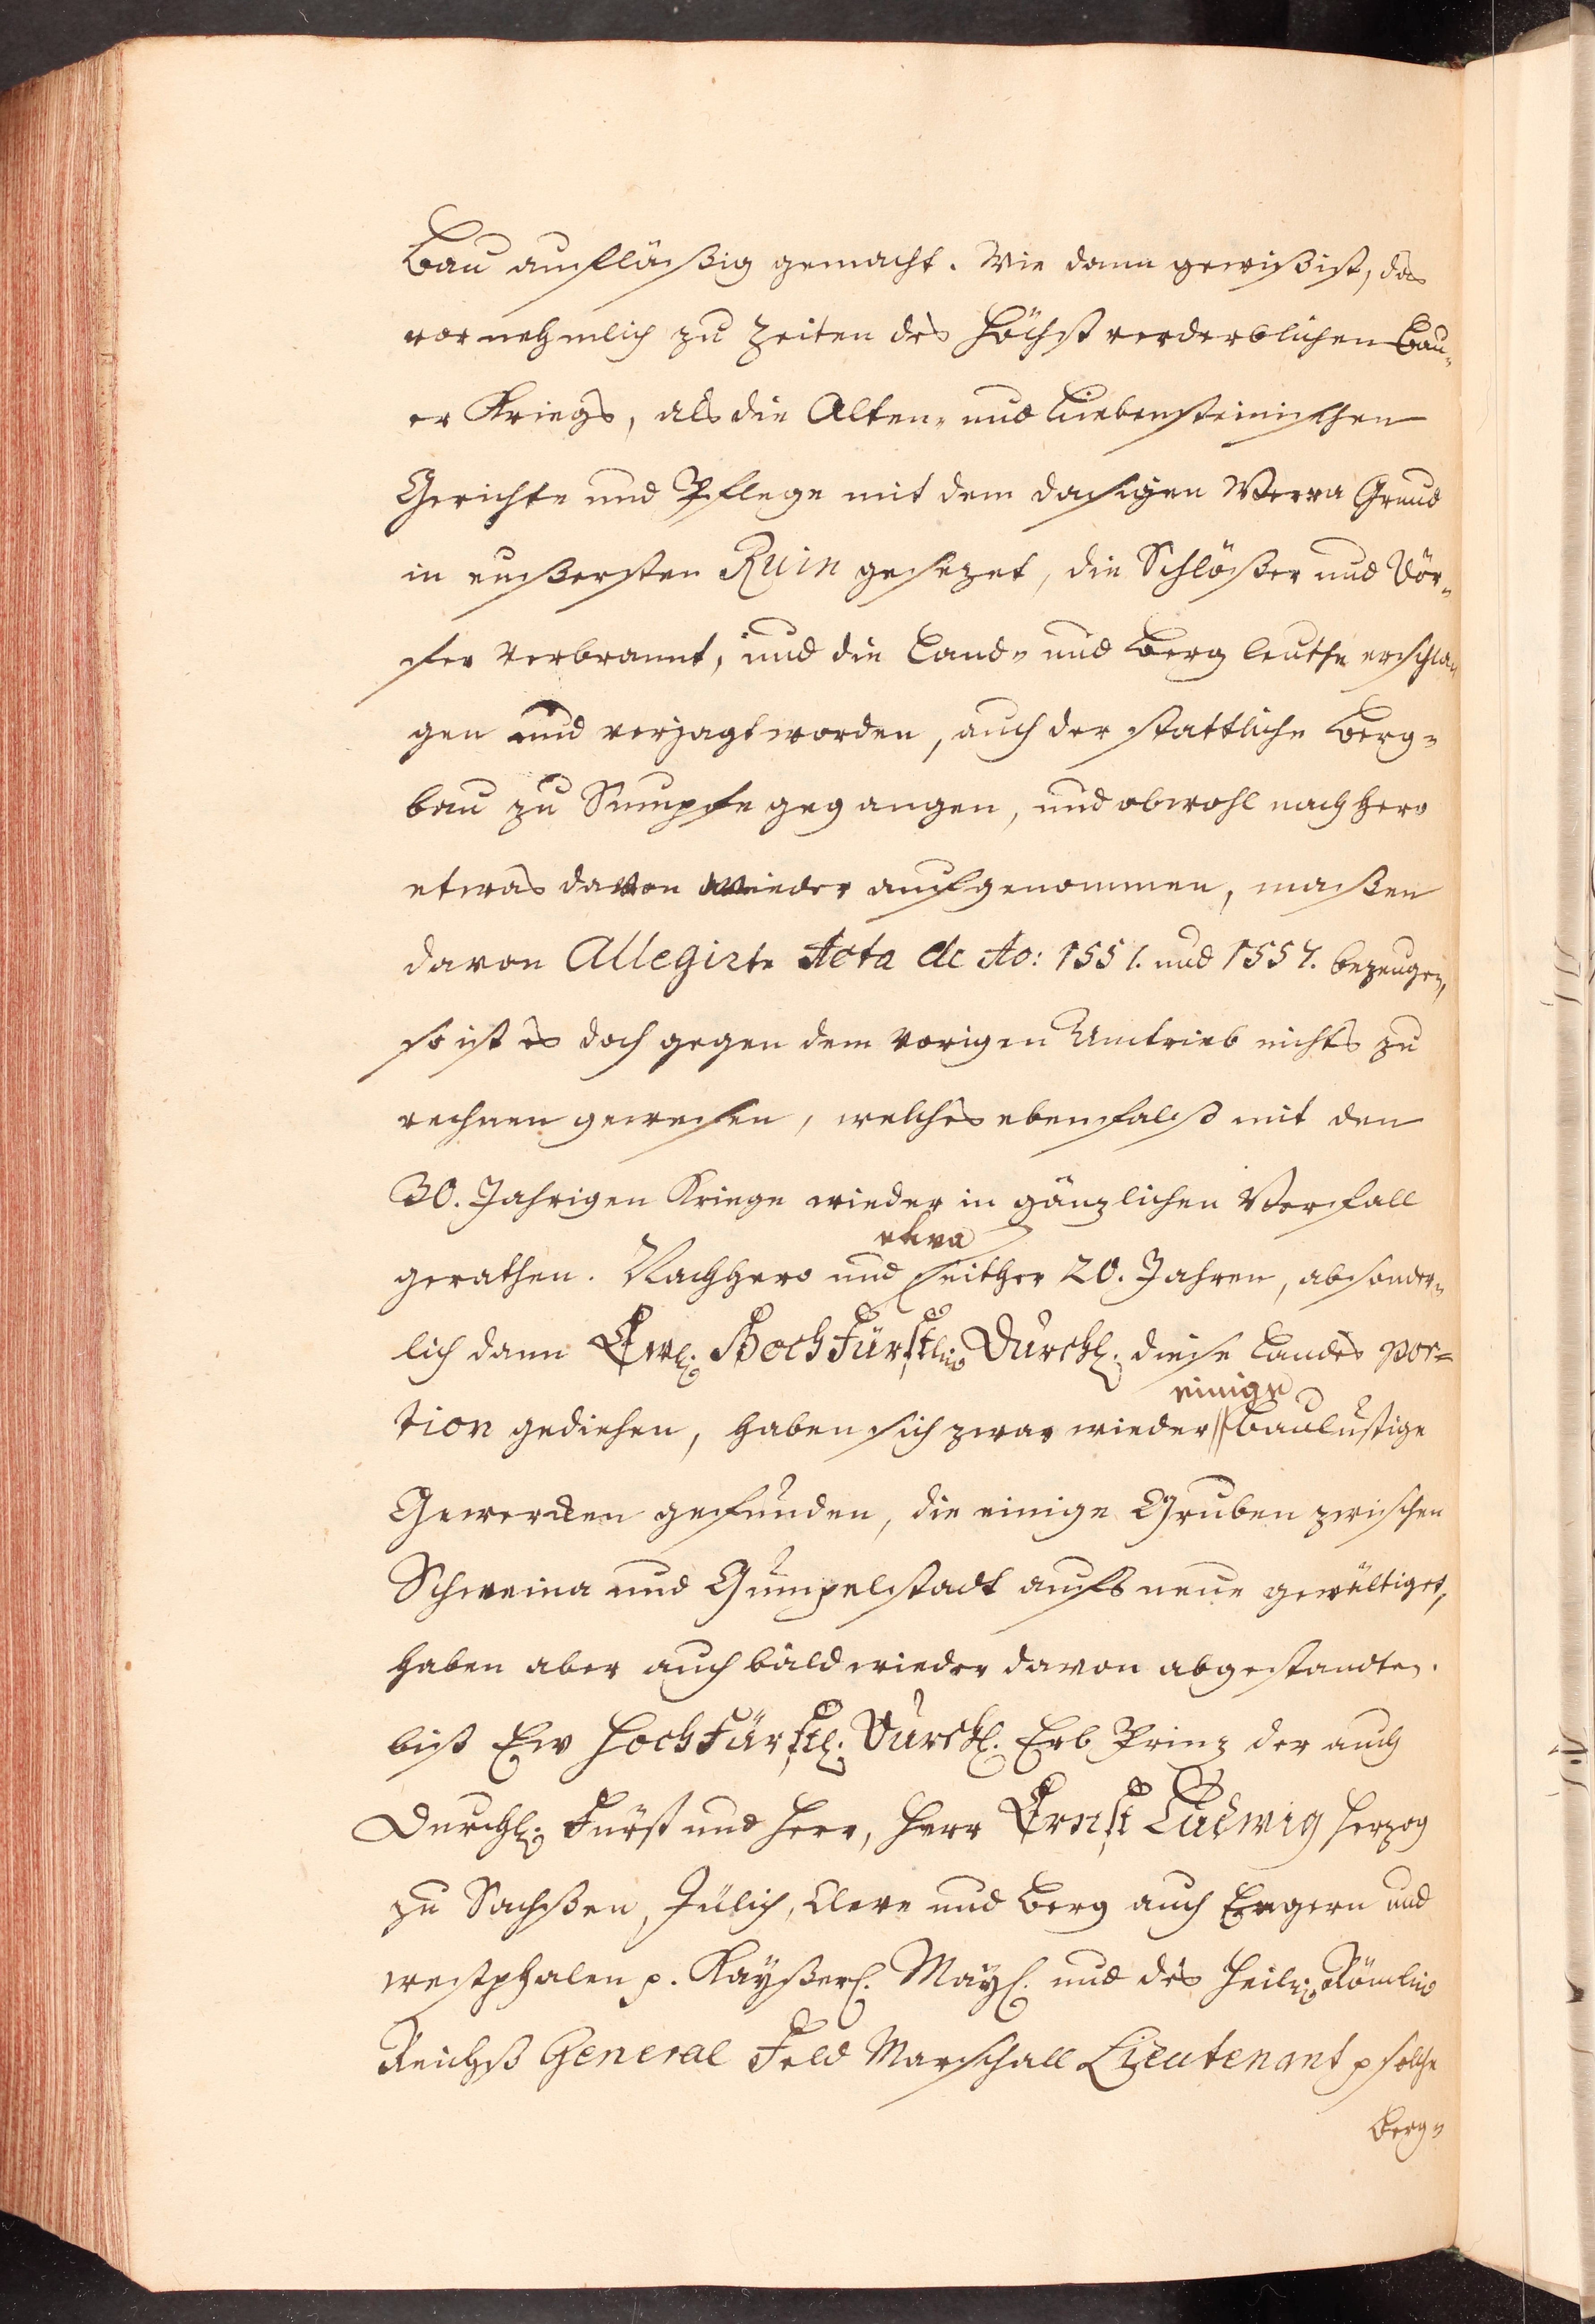 Bau aufläßig gemacht. Wie dann gewiß ist, das
vornehmlich zu Zeiten des höchst verderblichen Bau-
er Kriegs, als die Alten- und Liebensteinischen
Gerichte und Pflege mit dem dasigen Werra Grund
in eußersten Ruin gesezet, die Schlößer und Dör-
fer verbrannt, und die Land- und Bergleuthe erschla-
gen und verjagt worden, auch der stattliche Berg-
bau zu Sumpfe gegangen, und obwohl nachhero
etwas davon wieder aufgenommen, maßen
davon Allegirte Acta de Ao: 1551. und 1557. bezeugen,
so ist es doch gegen dem vorigen Umtrieb nichts zu
rechnen gewesen, welches ebenfalß mit den
30. Jahrigen Kriege wieder in gänzlichen Verfall
etwa
gerathen. Nachhero und seither 20. Jahren, absonder-
lich dann Ew. HochFürstl. Durchl. diese Landes por=
einige
tion gediehen, haben sich zwar wieder baulustige
Gewercken gefunden, die einige Gruben zwischen
Schweina und Gumpelstadt aufs neue gewältiget,
haben aber auch bald wieder davon abgestandten.
biß Ew HochFürstl. Durchl. Erb Prinz der auch
Durchl. Fürst und Herr, Herr Ernst Ludwig Herzog
zu Sachßen, Jülich, Cleve und Berg auch Engern und
westphalen p. Kayßerl. Mayl. und des Heil. Röml.
Reichß General Feld Marschall Lieutenant p solche
Berg-